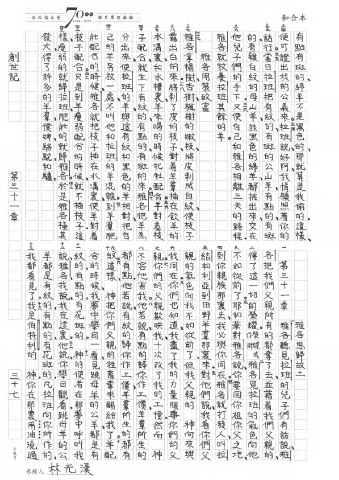 和合本
7000
有點有斑的綿羊不是黑色的那就算是我偷的這樣
便可證出我的公義來拉班說好阿我情願照著你的
話行當日拉班把有紋的有斑的公山羊有點的有斑
的有雜白紋的母山羊並黑色的綿羊都挑出來交在
他兒子們的手下又使自己和雅各相離三天的路程
雅各就牧養拉班其餘的羊
雅各用策致富
雅各拿楊樹杏樹楓樹的嫩枝將皮剝成白紋使枝子
露出白的來將剝了皮的枝子對著羊群插在飲羊的
水溝裏和水槽裏羊來喝的時候牝牡配合羊對著
枝子配合就生下有紋的有點的有斑的來雅各把羊羔
分出來使拉班的羊與這有紋和黑色的羊相對把自
己的羊另放一處不叫他和拉班的羊混雜到羊群肥
壯配合的時候雅各就把枝子插在水溝裏使羊對著
枝子配合只是到羊瘦弱配合的時候就不插枝子這
樣瘦弱的就歸拉班肥壯的就歸雅各於是雅各極其
發大得了許多的羊群僕婢駱駝和驢
第三十一章
雅各思歸故土
雅各聽見拉班的兒子們有話說雅
各把我們父親所有的都奪了去並藉著我們父親的
得了這一切的榮耀雅各見拉班的氣色向他
不如從前了耶和華對雅各說你要回你祖你父之地
到你親族那裏去我必與你同在雅各就打發人叫拉
結和利亞到田野羊群那裏來對他們說我看你們父
親的氣色向我不如從前了但我父親的神向來與
我同在你們也知道我盡了我的力量服事你們的父
親你們的父親欺哄我十次改了我的工價然而神
不容他害我他若說有點的歸你作工價羊群所生的
都有點他若說有紋的歸你作工價羊群所生的都有
紋這樣神把你們父親的牲畜奪來賜給我了羊配
合的時候我夢中舉目一看見跳母羊的公羊都是有
紋的有點的有花斑的神的使者在那夢中呼叫我
說雅各我說我在這裏他說你舉目觀看跳母羊的公
羊都是有紋的有點的有花斑的凡拉班向你所作的
我都看見了我是伯特利的神你在那裏用油澆過
創世記
第三十一章
三十七
抄經人 林元漢